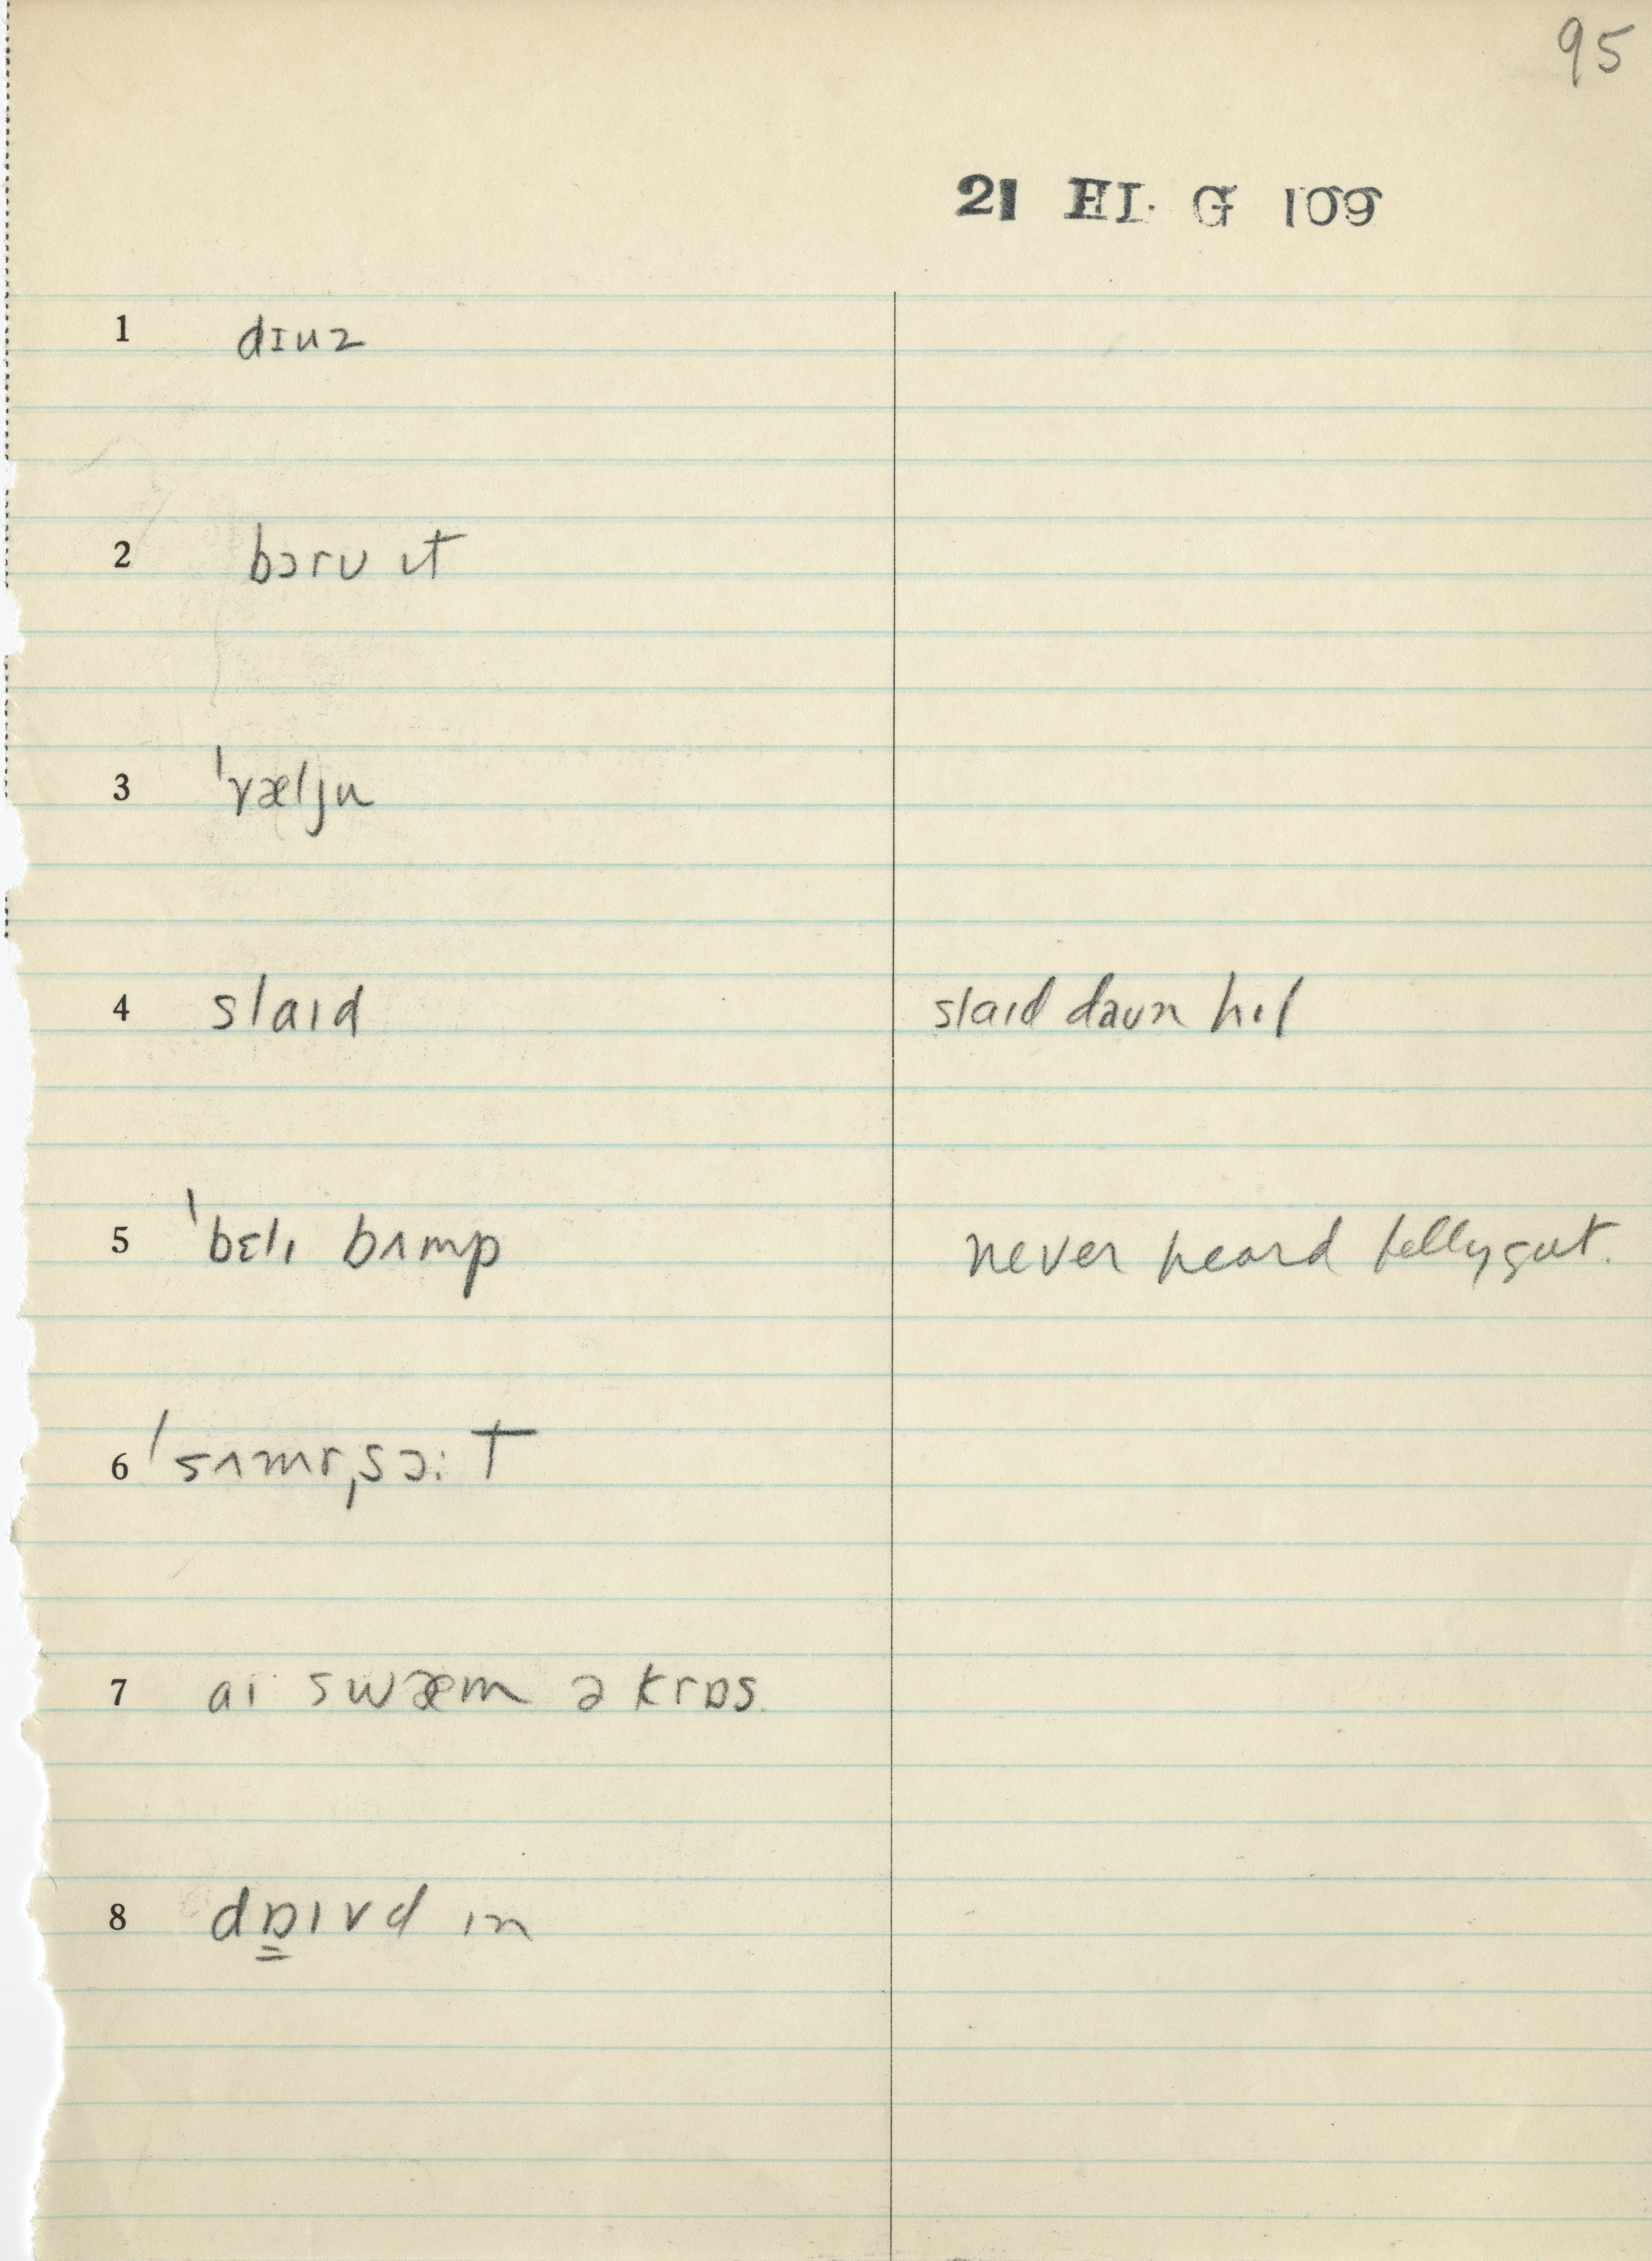 95
21 HI. G 109
1 dɪuz
2 bɔrʊ ɪt
3 ˈvæljʊ
4 slaɪd slaɪd daʊn hɪl
5 ˈbɛlɪ bʌmp never heard bellygut.
6 ˈsʌmrˌsɔːt
7 aɪ swæm ə krɒs.
8 dɒ̳ɪvd ɪn